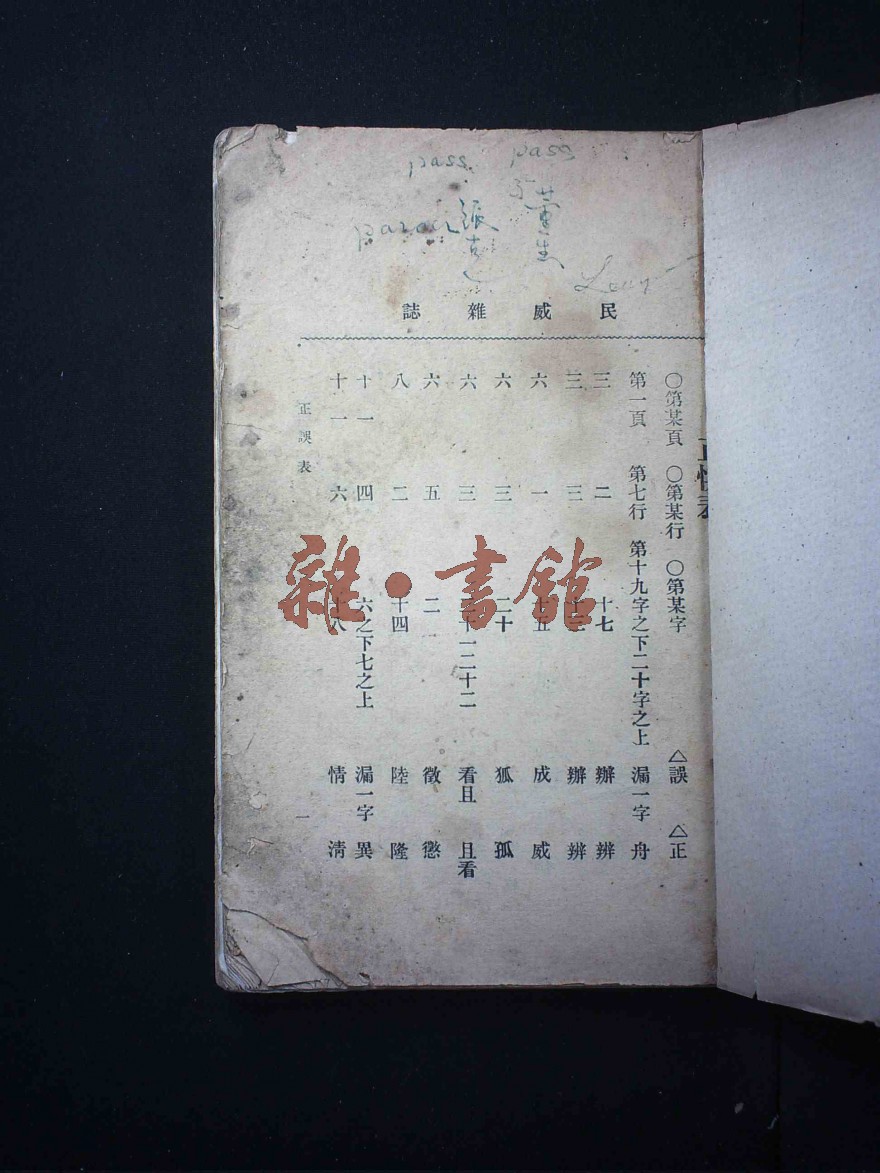 pass pass
民威雜誌
○第某頁 ○第某行 ○第某字 △誤 △正
第一頁 第七行 第十九字之下二十字之上 漏一字 舟
三 二 十七 辦 辨
三 三 辦 辨
六 一 十五 成 威
六 三 二十 狐 孤
六 三 二十一二十二 看且 且看
六 五 二 徵 懲
八 二 十四 陸 隆
十一 四 六之下七之上 漏一字 異
十一 六 十八 情 清
正誤表 一
雜·書館